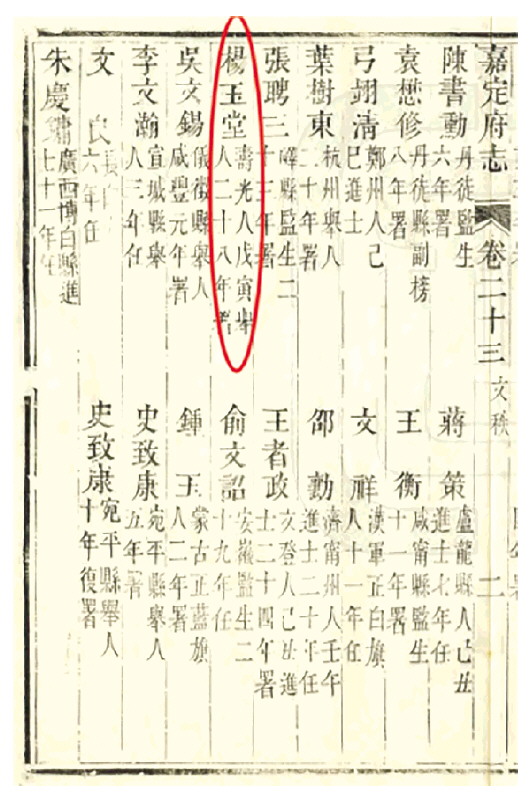 嘉定府志 卷二十三 文秩 二
陳書勳 丹徒監生六年署 蔣策 盧龍縣人己丑進士七年任
袁懋修 丹徒縣副榜八年署 王衡 咸甯縣監生十一年署
弓翊清 鄭州人己巳進士 文祥 漢軍正白旗人十一年任
葉樹東 杭州舉人二十年署 邵勷 濟甯州人壬午進士二十年任
張聘三 解縣監生二十三年署 王者政 文登人己丑進士二十四年署
楊玉堂 壽光人戊寅舉人二十八年署 俞文詔 安徽監生二十九年任
吳文錫 儀徵縣舉人咸豐元年署 鍾玉 蒙古正藍旗人二年署
李文瀚 宣城縣舉人三年任 史致康 宛平縣舉人五年署
文良 六年任 史致康 宛平縣舉人十年復署
朱慶鏞 廣西博白縣進士十一年任